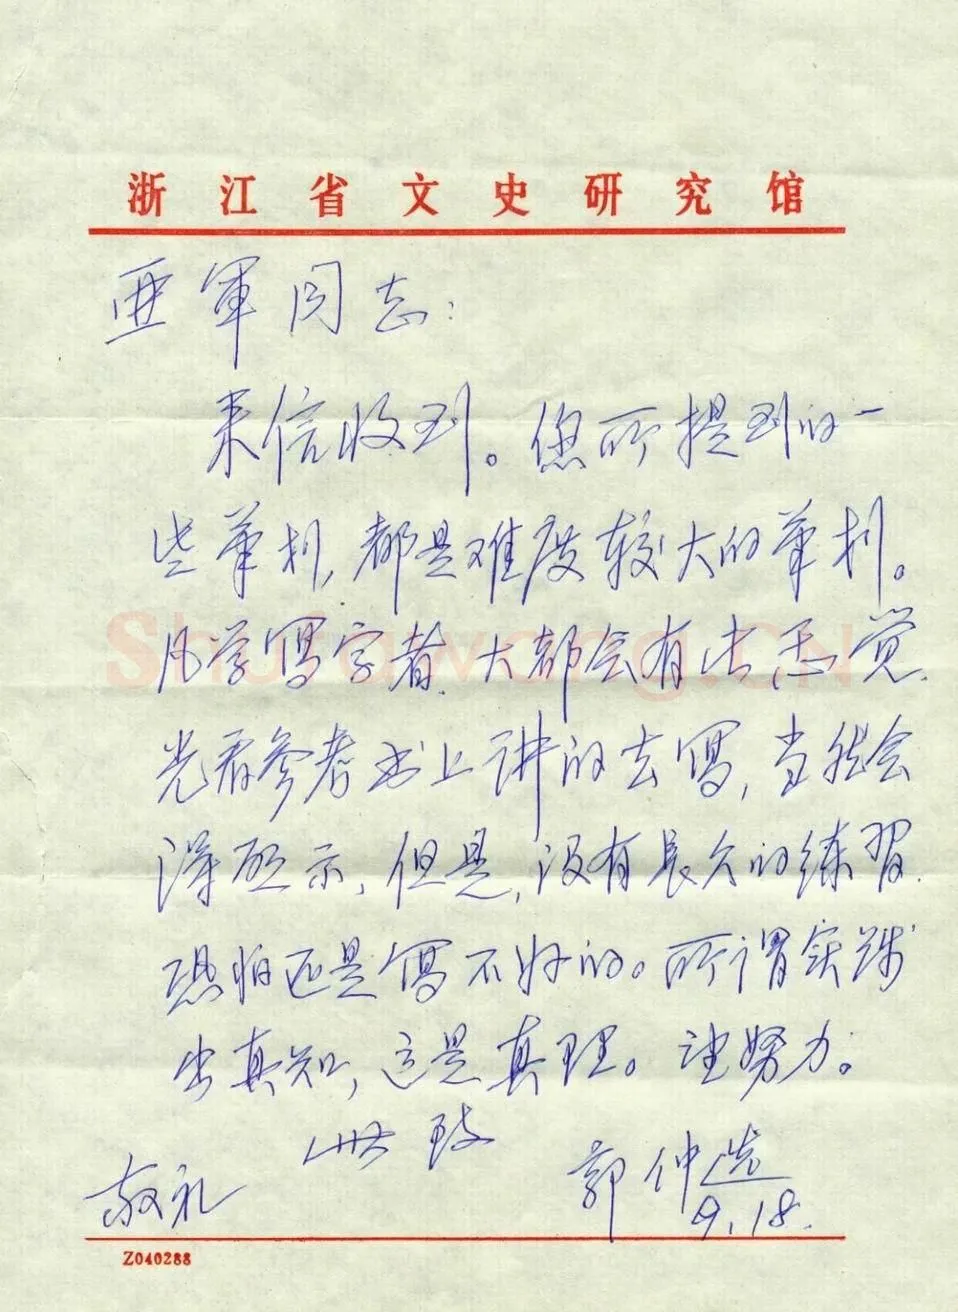 浙江省文史研究馆
亜軍同志：
来信收到。您所提到的一
些筆划，都是难度较大的筆划。
凡学寫字者，大都会有此感觉，
光看参考书上讲的去寫，当然会
得启示，但是，没有長久的练習，
恐怕还是寫不好的。所谓实践
出真知，这是真理。望努力。
此致
敬礼
郭仲选
9.18.
Z040288
Shufawang.CN